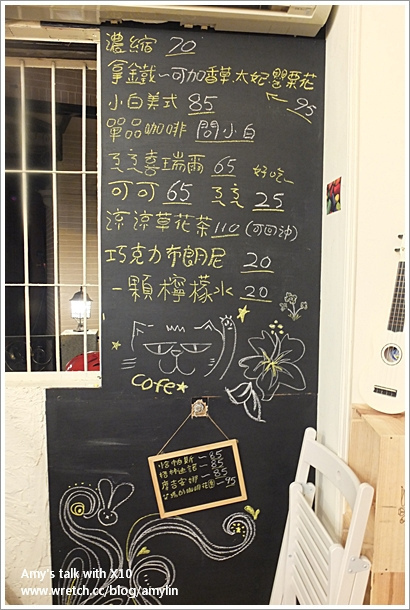 濃縮 70
拿鐵~可加香草.太妃.墨栗花
95
小白美式 85
單品咖啡 問小白
烹烹喜瑞爾 65 好吃~
可可 65 烹烹 25
涼涼草花茶 110 (可回沖)
巧克力布朗尼 20
一顆檸檬水 20
cafe
恰帕斯—85
85
摩吉安娜—85
95
Amy's talk with X10
www.wretch.cc/blog/amylin